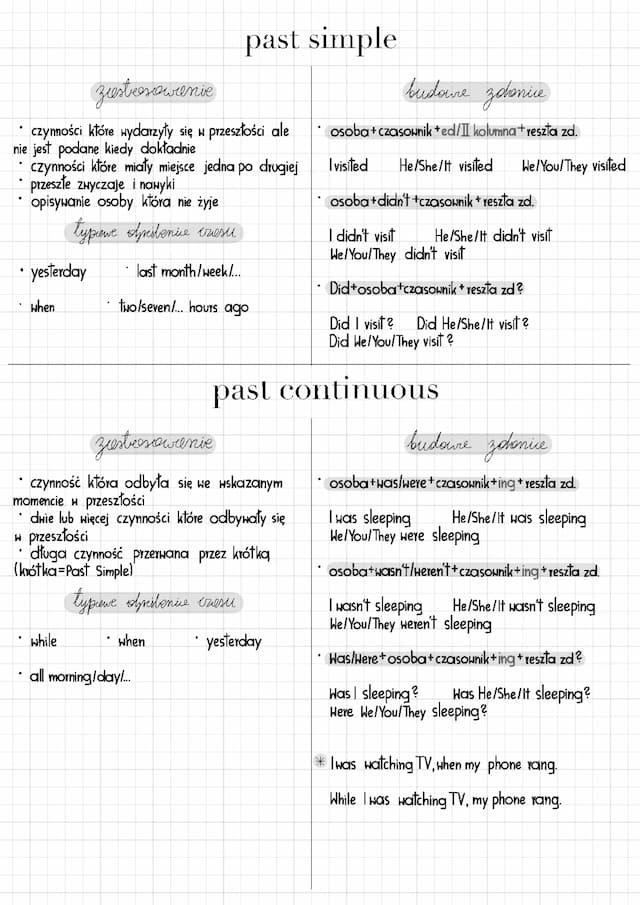 past simple
zastosowanie
• czynności które wydarzyły się w przeszłości ale
nie jest podane kiedy dokładnie
• czynności które miały miejsce jedna po drugiej
• przeszłe zwyczaje i nawyki
• opisywanie osoby która nie żyje
typowe określenia czasu
• yesterday • last month/week/...
• when • two/seven/... hours ago
budowa zdania
• osoba+czasownik+ed/II kolumna+reszta zd.
I visited He/She/It visited We/You/They visited
• osoba+didn't+czasownik+reszta zd.
I didn't visit He/She/It didn't visit
We/You/They didn't visit
• Did+osoba+czasownik+reszta zd?
Did I visit? Did He/She/It visit?
Did We/You/They visit?
past continuous
zastosowanie
• czynność która odbyła się we wskazanym
momencie w przeszłości
• dwie lub więcej czynności które odbywały się
w przeszłości
• długa czynność przerwana przez krótką
(krótka=Past Simple)
typowe określenia czasu
• while • when • yesterday
• all morning/day/...
budowa zdania
• osoba+was/were+czasownik+ing+reszta zd.
I was sleeping He/She/It was sleeping
We/You/They were sleeping
• osoba+wasn't/weren't+czasownik+ing+reszta zd.
I wasn't sleeping He/She/It wasn't sleeping
We/You/They weren't sleeping
• Was/Were+osoba+czasownik+ing+reszta zd?
Was I sleeping? Was He/She/It sleeping?
Were We/You/They sleeping?
* I was watching TV, when my phone rang.
While I was watching TV, my phone rang.